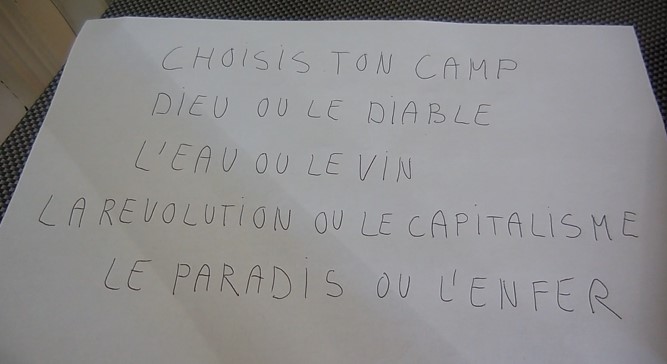 CHOISIS TON CAMP
DIEU OU LE DIABLE
L'EAU OU LE VIN
LA REVOLUTION OU LE CAPITALISME
LE PARADIS OU L'ENFER